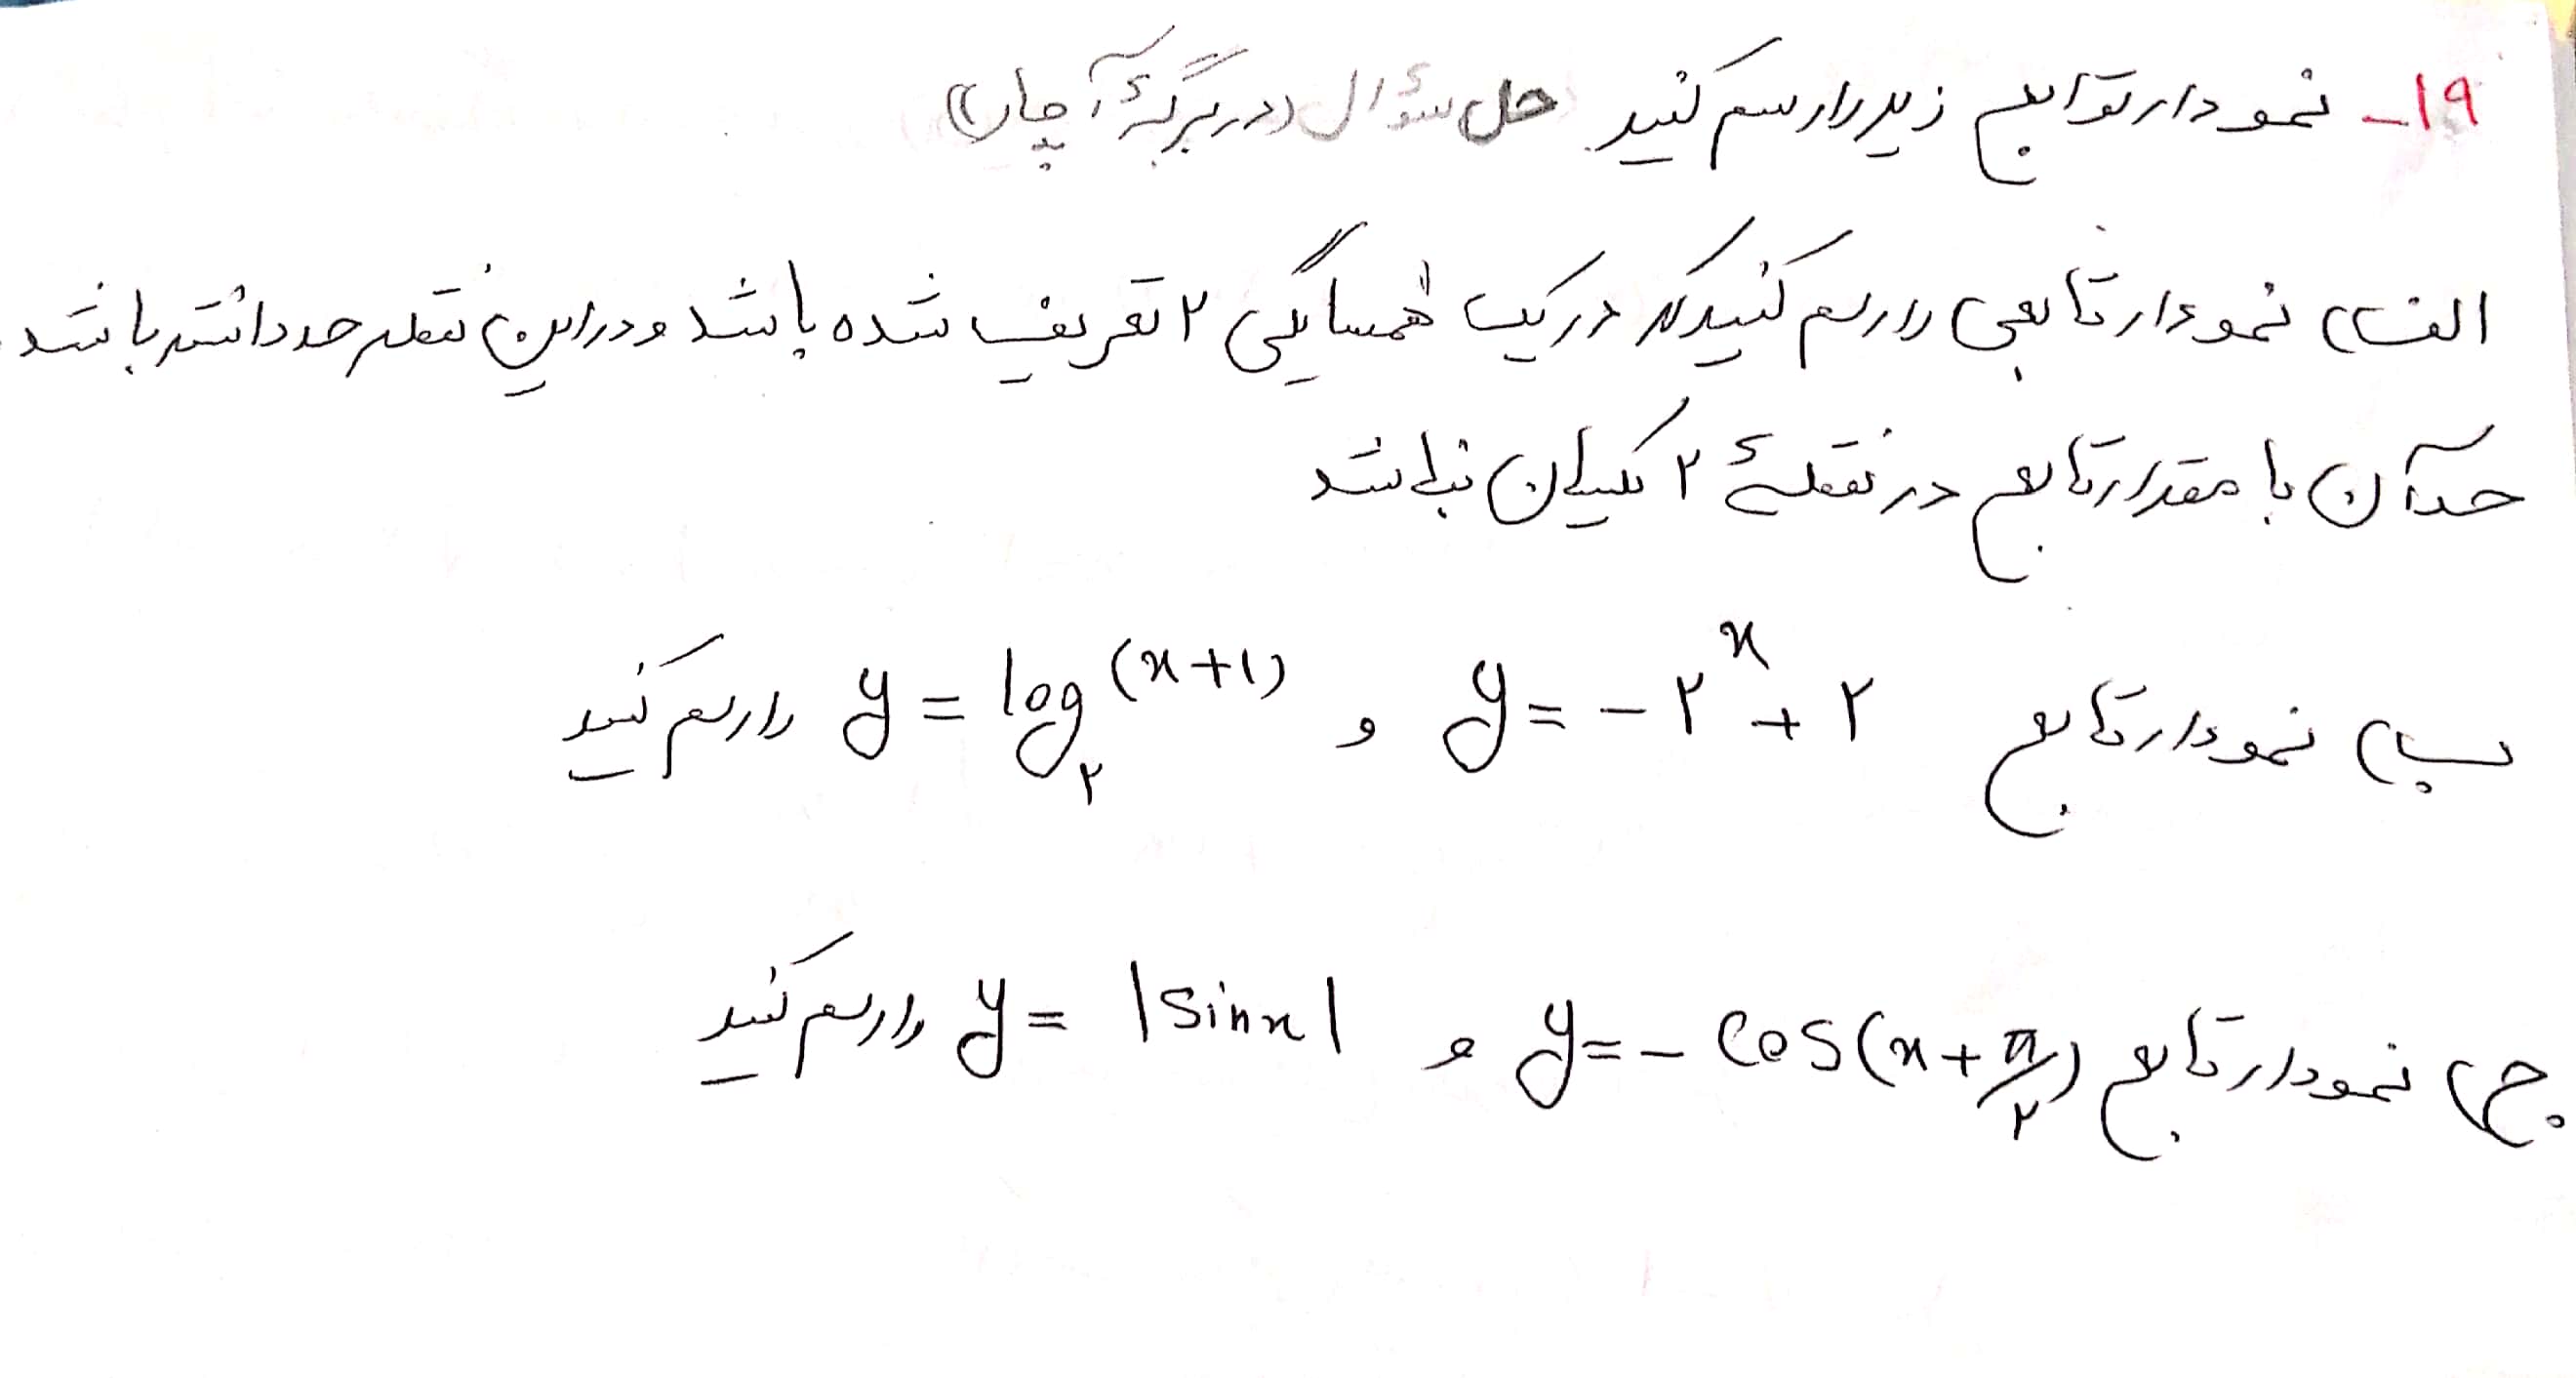 ۱۹- نمودار توابع زیر را رسم کنید حل سؤال (در برگهٔ آچار)
الف) نمودار تابعی را رسم کنید که در یک همسایگی ۲ تعریف شده باشد و در این نقطه حد داشته باشد
حد آن با مقدار تابع در نقطهٔ ۲ یکسان نباشد
ب) نمودار تابع y = -۲^x + ۲ و y = log_۲^(x+۱) را رسم کنید
ج) نمودار تابع y = -cos(x + π/۲) و y = |sin x| را رسم کنید